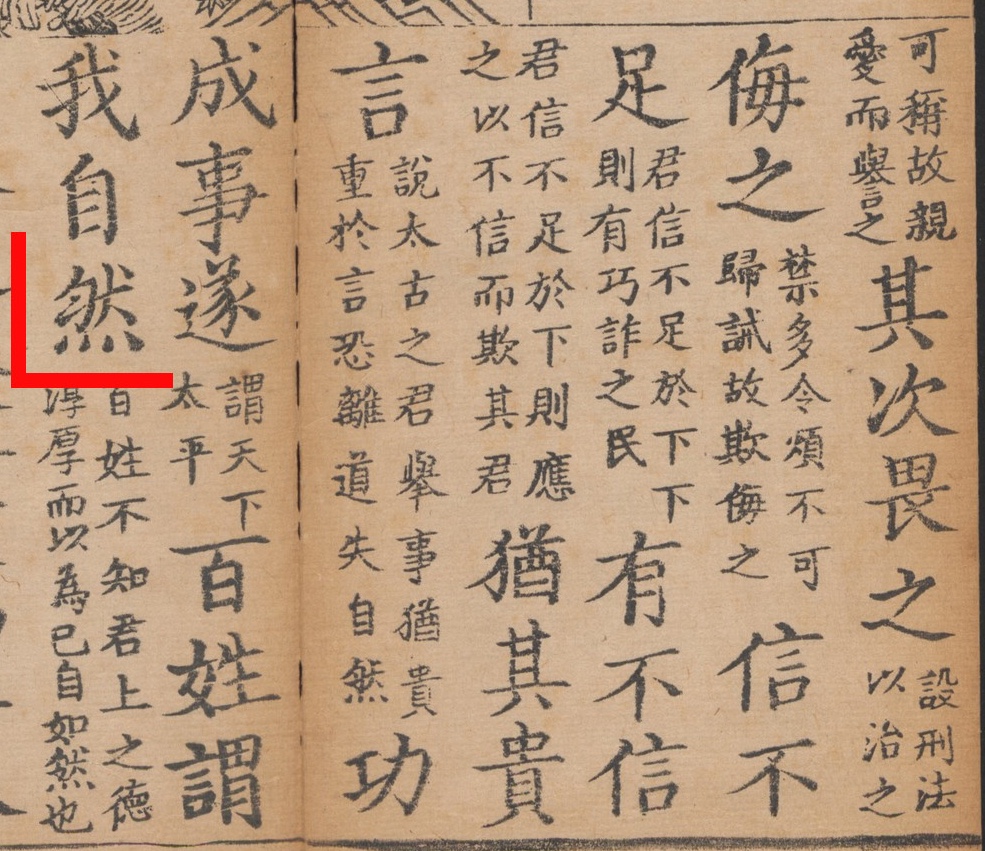 可稱故親愛而譽之其次畏之設刑法以治之
侮之禁多令煩不可歸誠故欺侮之信不
足君信不足於下下則有巧詐之民有不信
君信不足於下則應之以不信而欺其君猶其貴
言說太古之君舉事猶貴重於言恐離道失自然功
成事遂謂天下太平百姓謂
我自然百姓不知君上之德淳厚而以為己自如然也